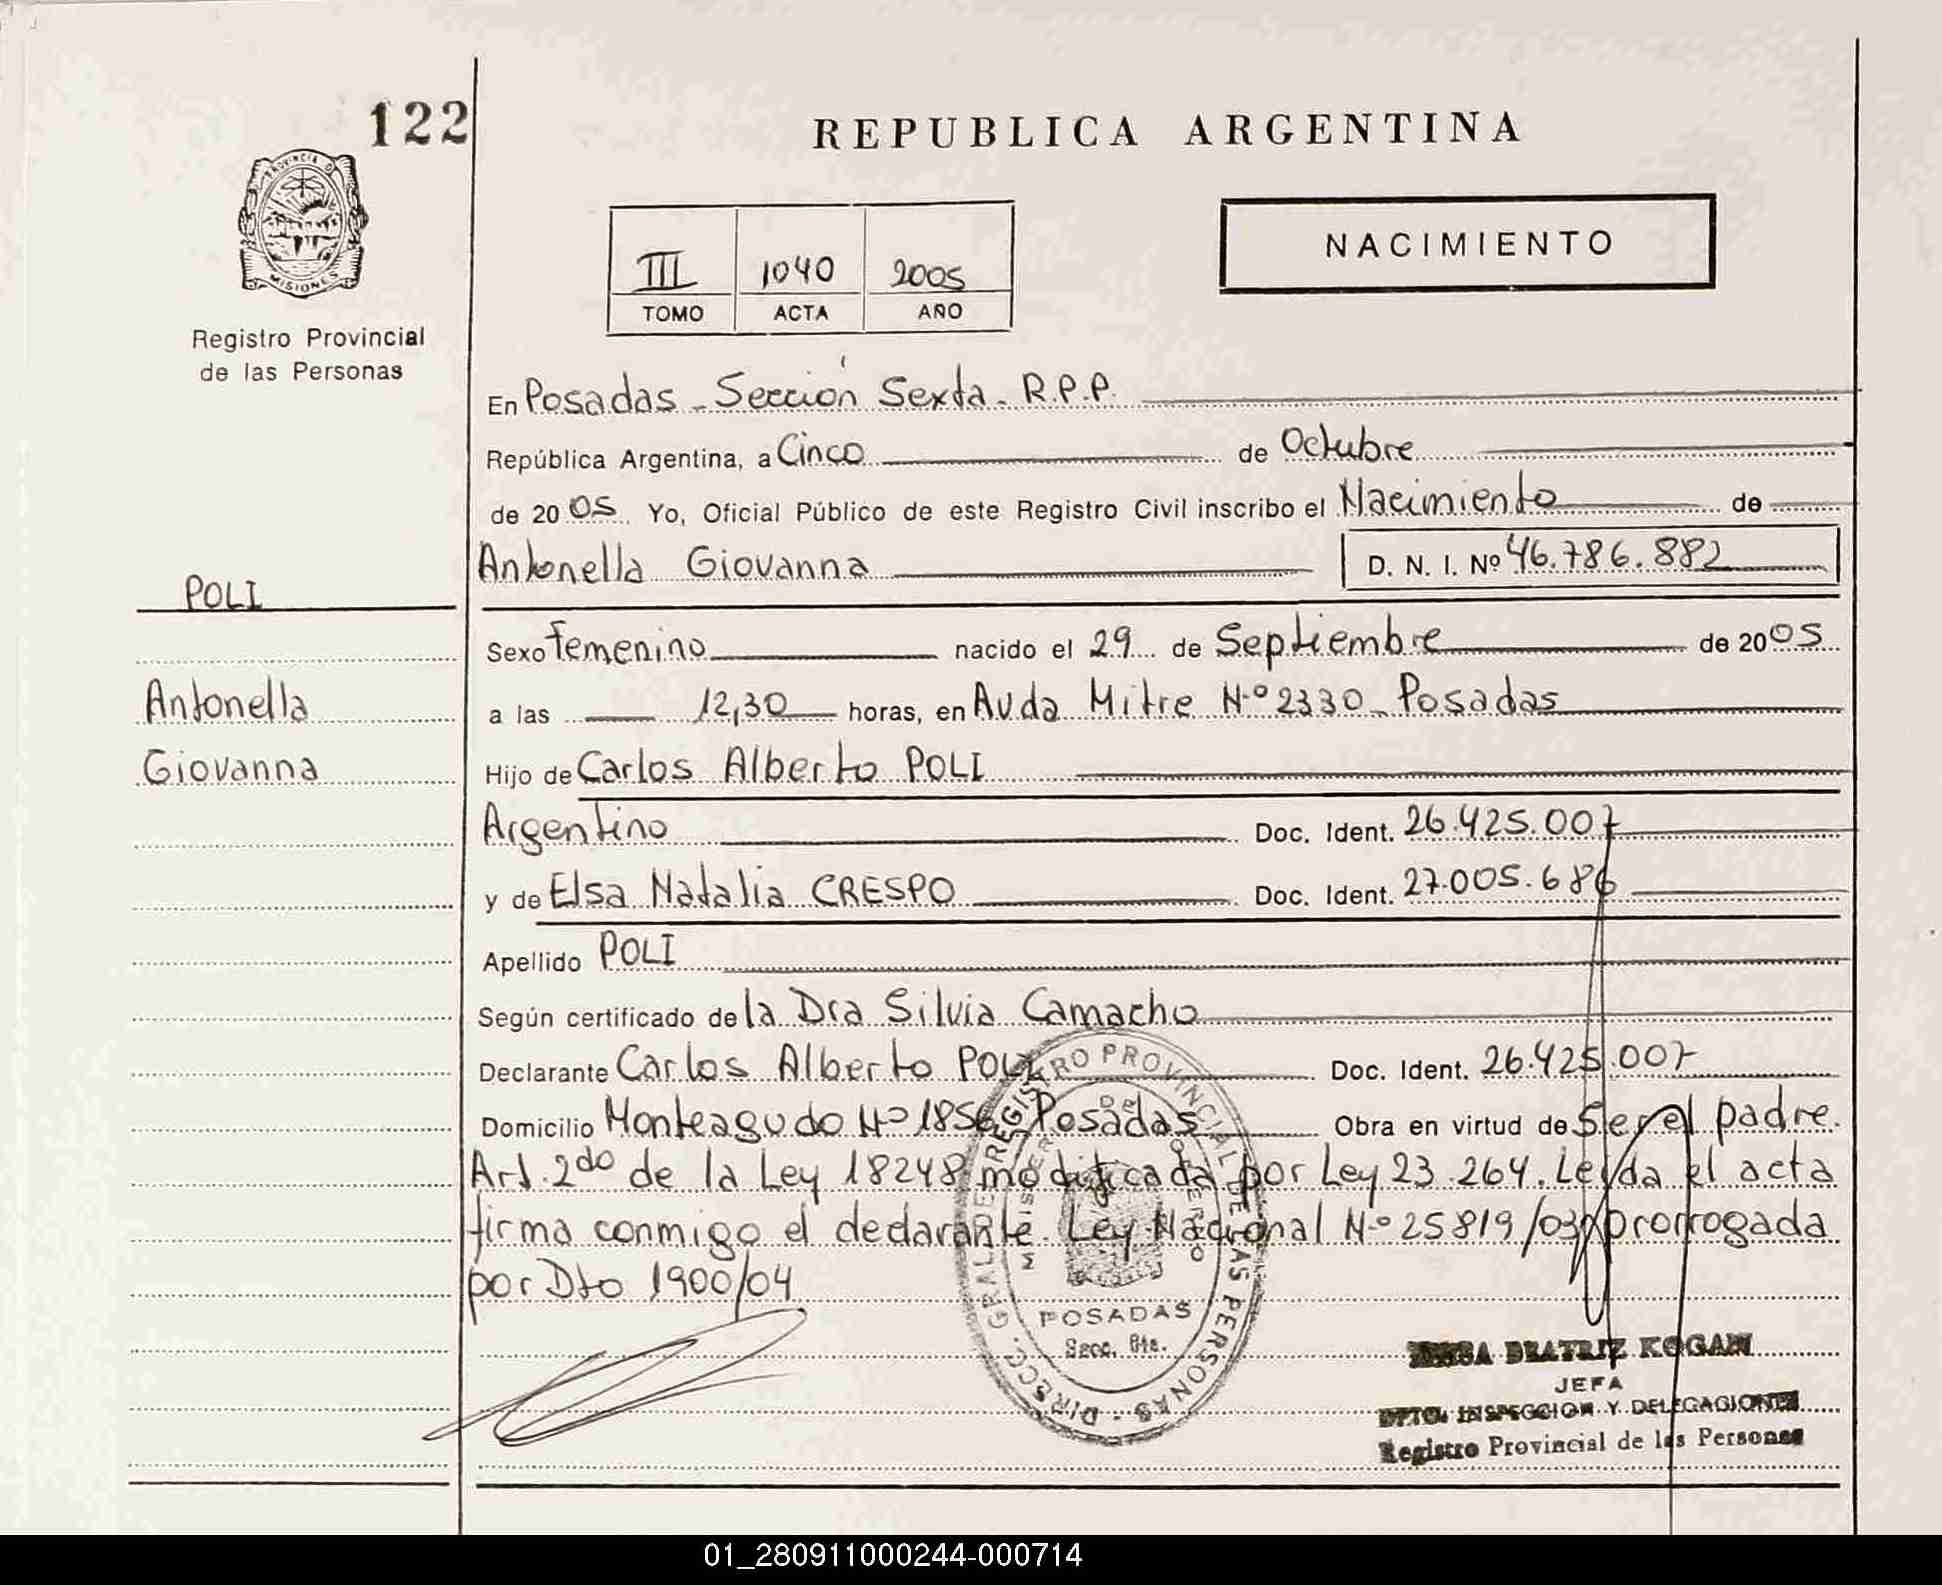 122
PROVINCIA D
MISIONES
Registro Provincial
de las Personas
REPUBLICA ARGENTINA
III 1040 2005
TOMO ACTA AÑO
NACIMIENTO
En Posadas - Sección Sexta - R.P.P.
República Argentina, a Cinco de Octubre
de 2005 Yo, Oficial Público de este Registro Civil inscribo el Nacimiento de
Antonella Giovanna D. N. I. Nº 46.786.882
POLI
Antonella
Giovanna
Sexo femenino nacido el 29 de Septiembre de 2005
a las 12,30 horas, en Avda Mitre Nº 2330 Posadas
Hijo de Carlos Alberto POLI
Argentino Doc. Ident. 26.425.007
y de Elsa Natalia CRESPO Doc. Ident. 27.005.686
Apellido POLI
Según certificado de la Dra Silvia Camacho
Declarante Carlos Alberto POLI Doc. Ident. 26.425.007
Domicilio Monteagudo Nº 1856 Posadas Obra en virtud de Ser el padre.
Art. 2do de la Ley 18248 modificada por Ley 23.264. Leida el acta
firma conmigo el declarante. Ley Nacional Nº 25819/03 prorrogada
por Dto 1900/04
DIRECC. GRAL. DE REGISTRO PROVINCIAL DE LAS PERSONAS
POSADAS
Secc. 6ta.
BEATRIZ KOGAN
JEFA
DPTO. INSPECCION Y DELEGACIONES
Registro Provincial de las Personas
01_280911000244-000714